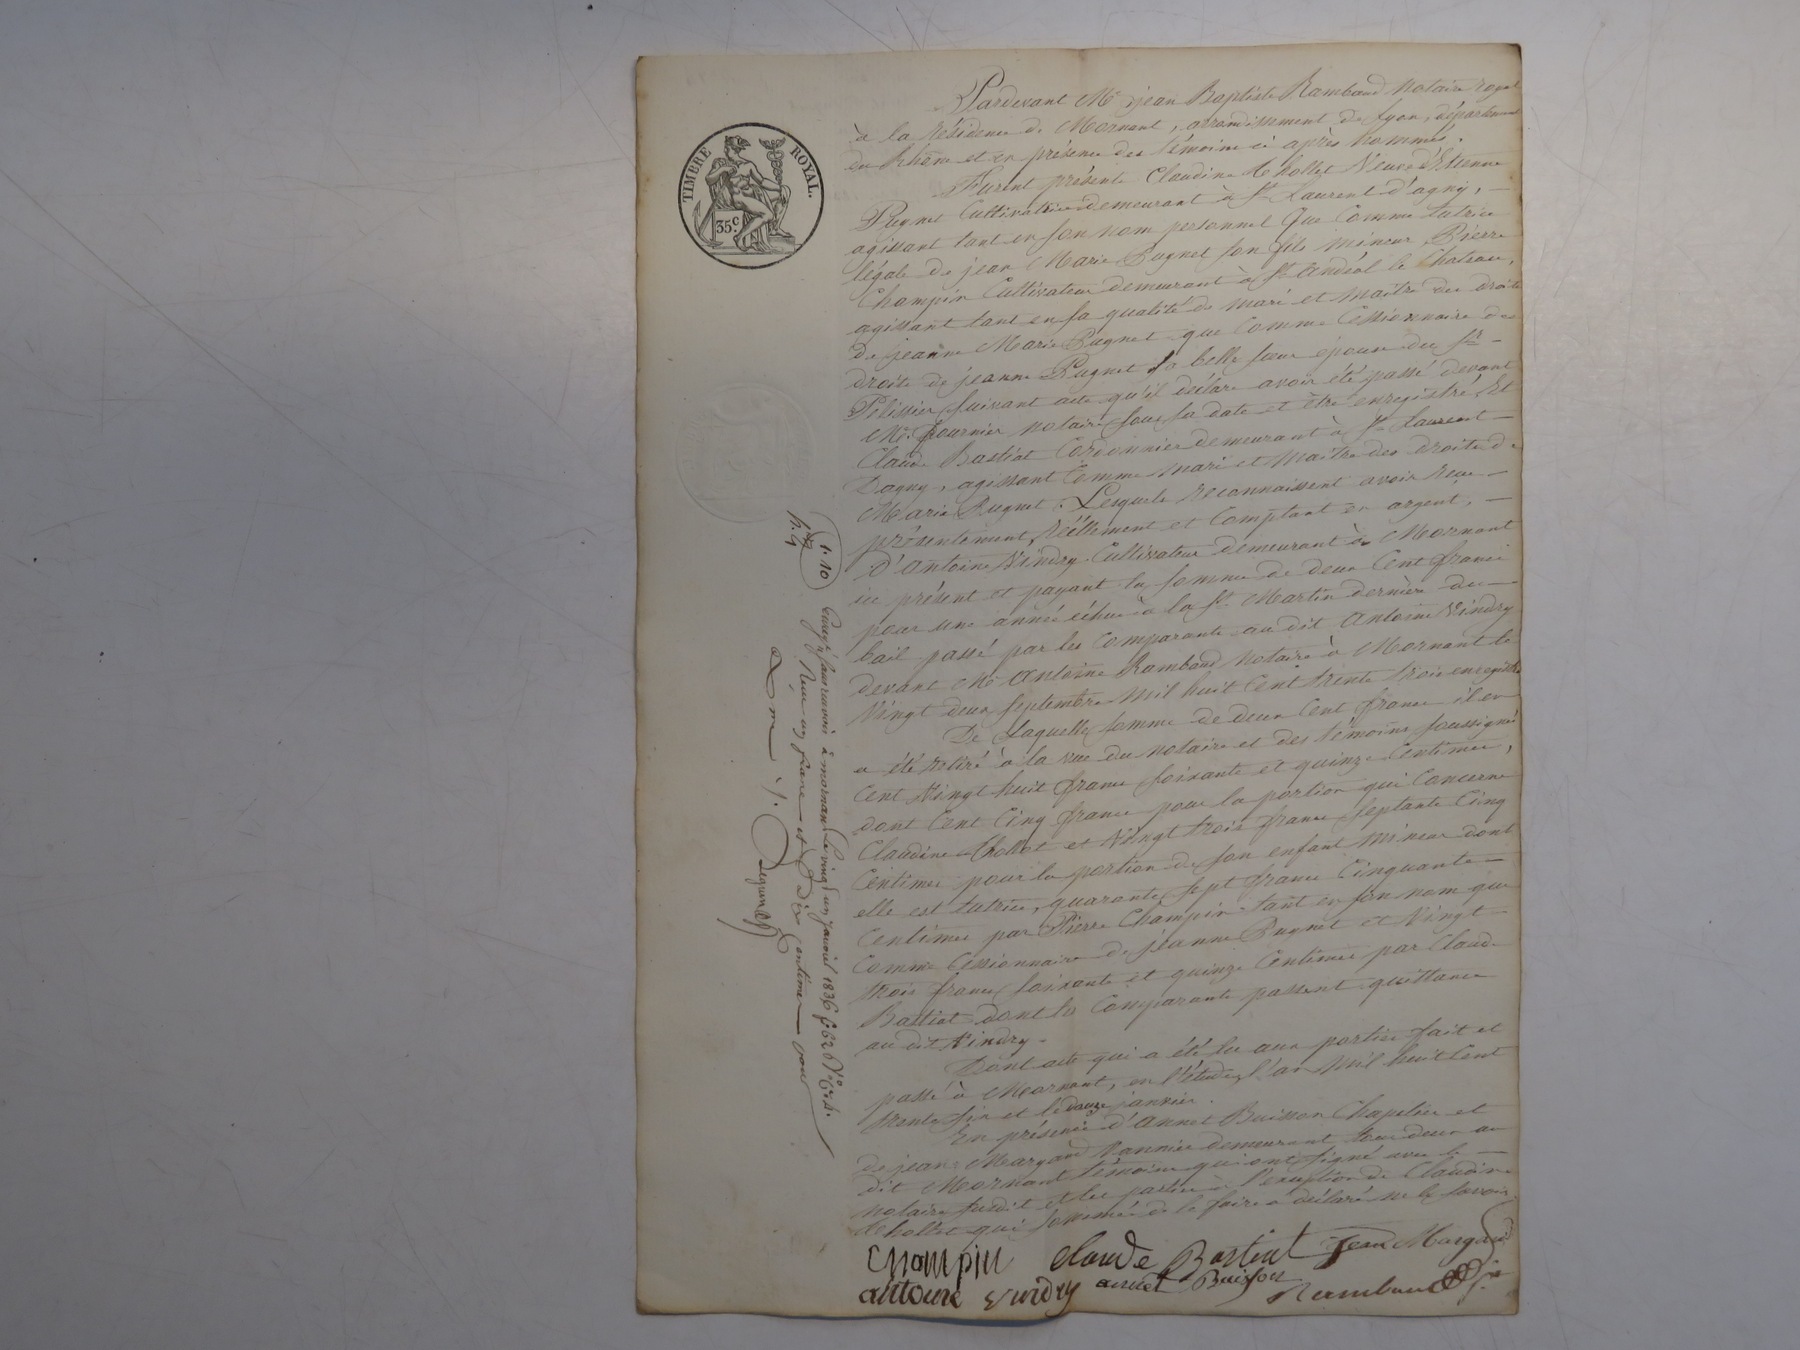 TIMBRE ROYAL.
35.c
Pardevant Me jean Baptiste Rambaud Notaire royal
à la résidence de Mornant, arrondissement de Lyon, département
du Rhône et en présence des témoins ci après nommés.
Furent présents Claudine Thollet Veuve d'Etienne
Pugnet Cultivatrice demeurant à St Laurent d'agny, —
agissant tant en son nom personnel que comme tutrice
légale de jean Marie Pugnet son fils mineur Pierre
Champin Cultivateur demeurant à St andéol le Chateau,
agissant tant en sa qualité de mari et maître des droits
de jeanne Marie Pugnet que comme Cessionnaire des
droits de jeanne Pugnet sa belle sœur épouse du Sr —
Pélissier suivant acte qu'il déclare avoir été passé devant
Me. fournier notaire sous sa date et être enregistré, Et
Claude Bastiat Cordonnier demeurant à St Laurent —
Dagny, agissant comme mari et maître des droits de
Marie Pugnet. Lesquels reconnaissent avoir reçu —
présentement, réellement et comptant en argent, —
D'antoine Vindry Cultivateur demeurant à Mornant
ici présent et payant la somme de deux Cent francs
pour une année échue à la St Martin dernière du —
bail passé par les comparants au dit antoine Vindry
devant Me antoine Rambaud notaire à Mornant le
Vingt deux septembre mil huit Cent trente trois enregistré
De Laquelle somme de deux Cent francs il en
a été retiré à la vue du notaire et des témoins soussignés
Cent Vingt huit francs soixante et quinze Centimes,
dont Cent Cinq francs pour la portion qui concerne
Claudine Thollet et Vingt trois francs septante Cinq
Centimes pour la portion de son enfant mineur dont
elle est tutrice, quarante sept francs Cinquante —
Centimes par Pierre Champin tant en son nom que
comme Cessionnaire de jeanne Pugnet et Vingt —
trois francs soixante et quinze Centimes par Claude
Bastiat dont les comparants passent quittance
au dit Vindry.
Dont acte qui a été lu aux parties fait et
passé à Mornant, en l'étude, l'an Mil huit Cent
trente six et le douze janvier.
En présence d'annet Buisson Chapelier et
de jean Margand Vannier demeurant tous deux au
dit Mornant témoins qui ont signé avec le —
notaire susdit et les parties à l'exception de Claudine
thollet qui sommée de le faire a déclaré ne le savoir
Champin Claude Bastiat Jean Margand
antoine vindry annet Buisson Rambaud
1. 10
Enregistré à mornant le vingt un janvier 1836 fo 62 Vo C. 4.
Reçu un franc et dix centimes pour